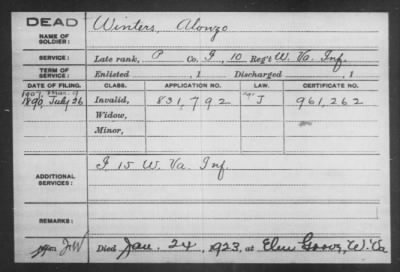 DEAD
NAME OF SOLDIER: Winters, Alonzo
SERVICE: Late rank, P Co. I, 10 Reg't W. Va. Inf.
TERM OF SERVICE: Enlisted , 1 Discharged , 1
DATE OF FILING. CLASS. APPLICATION NO. LAW. CERTIFICATE NO.
1907, Mar. 9
1890, July 26 Invalid, 831,792 J 961,262
Widow,
Minor,
ADDITIONAL SERVICES: I 15 W. Va. Inf.
REMARKS:
Died Jan. 24, 1923, at Elm Grove, W. Va